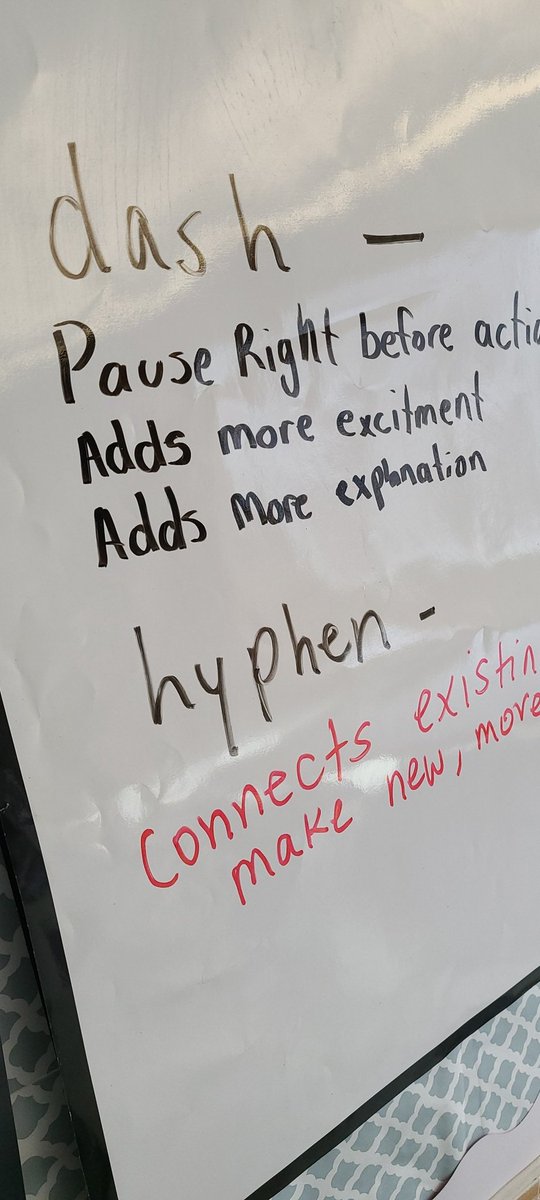 dash —
Pause Right before actio
Adds more excitment
Adds more explanation
hyphen -
Connects existin
make new, more